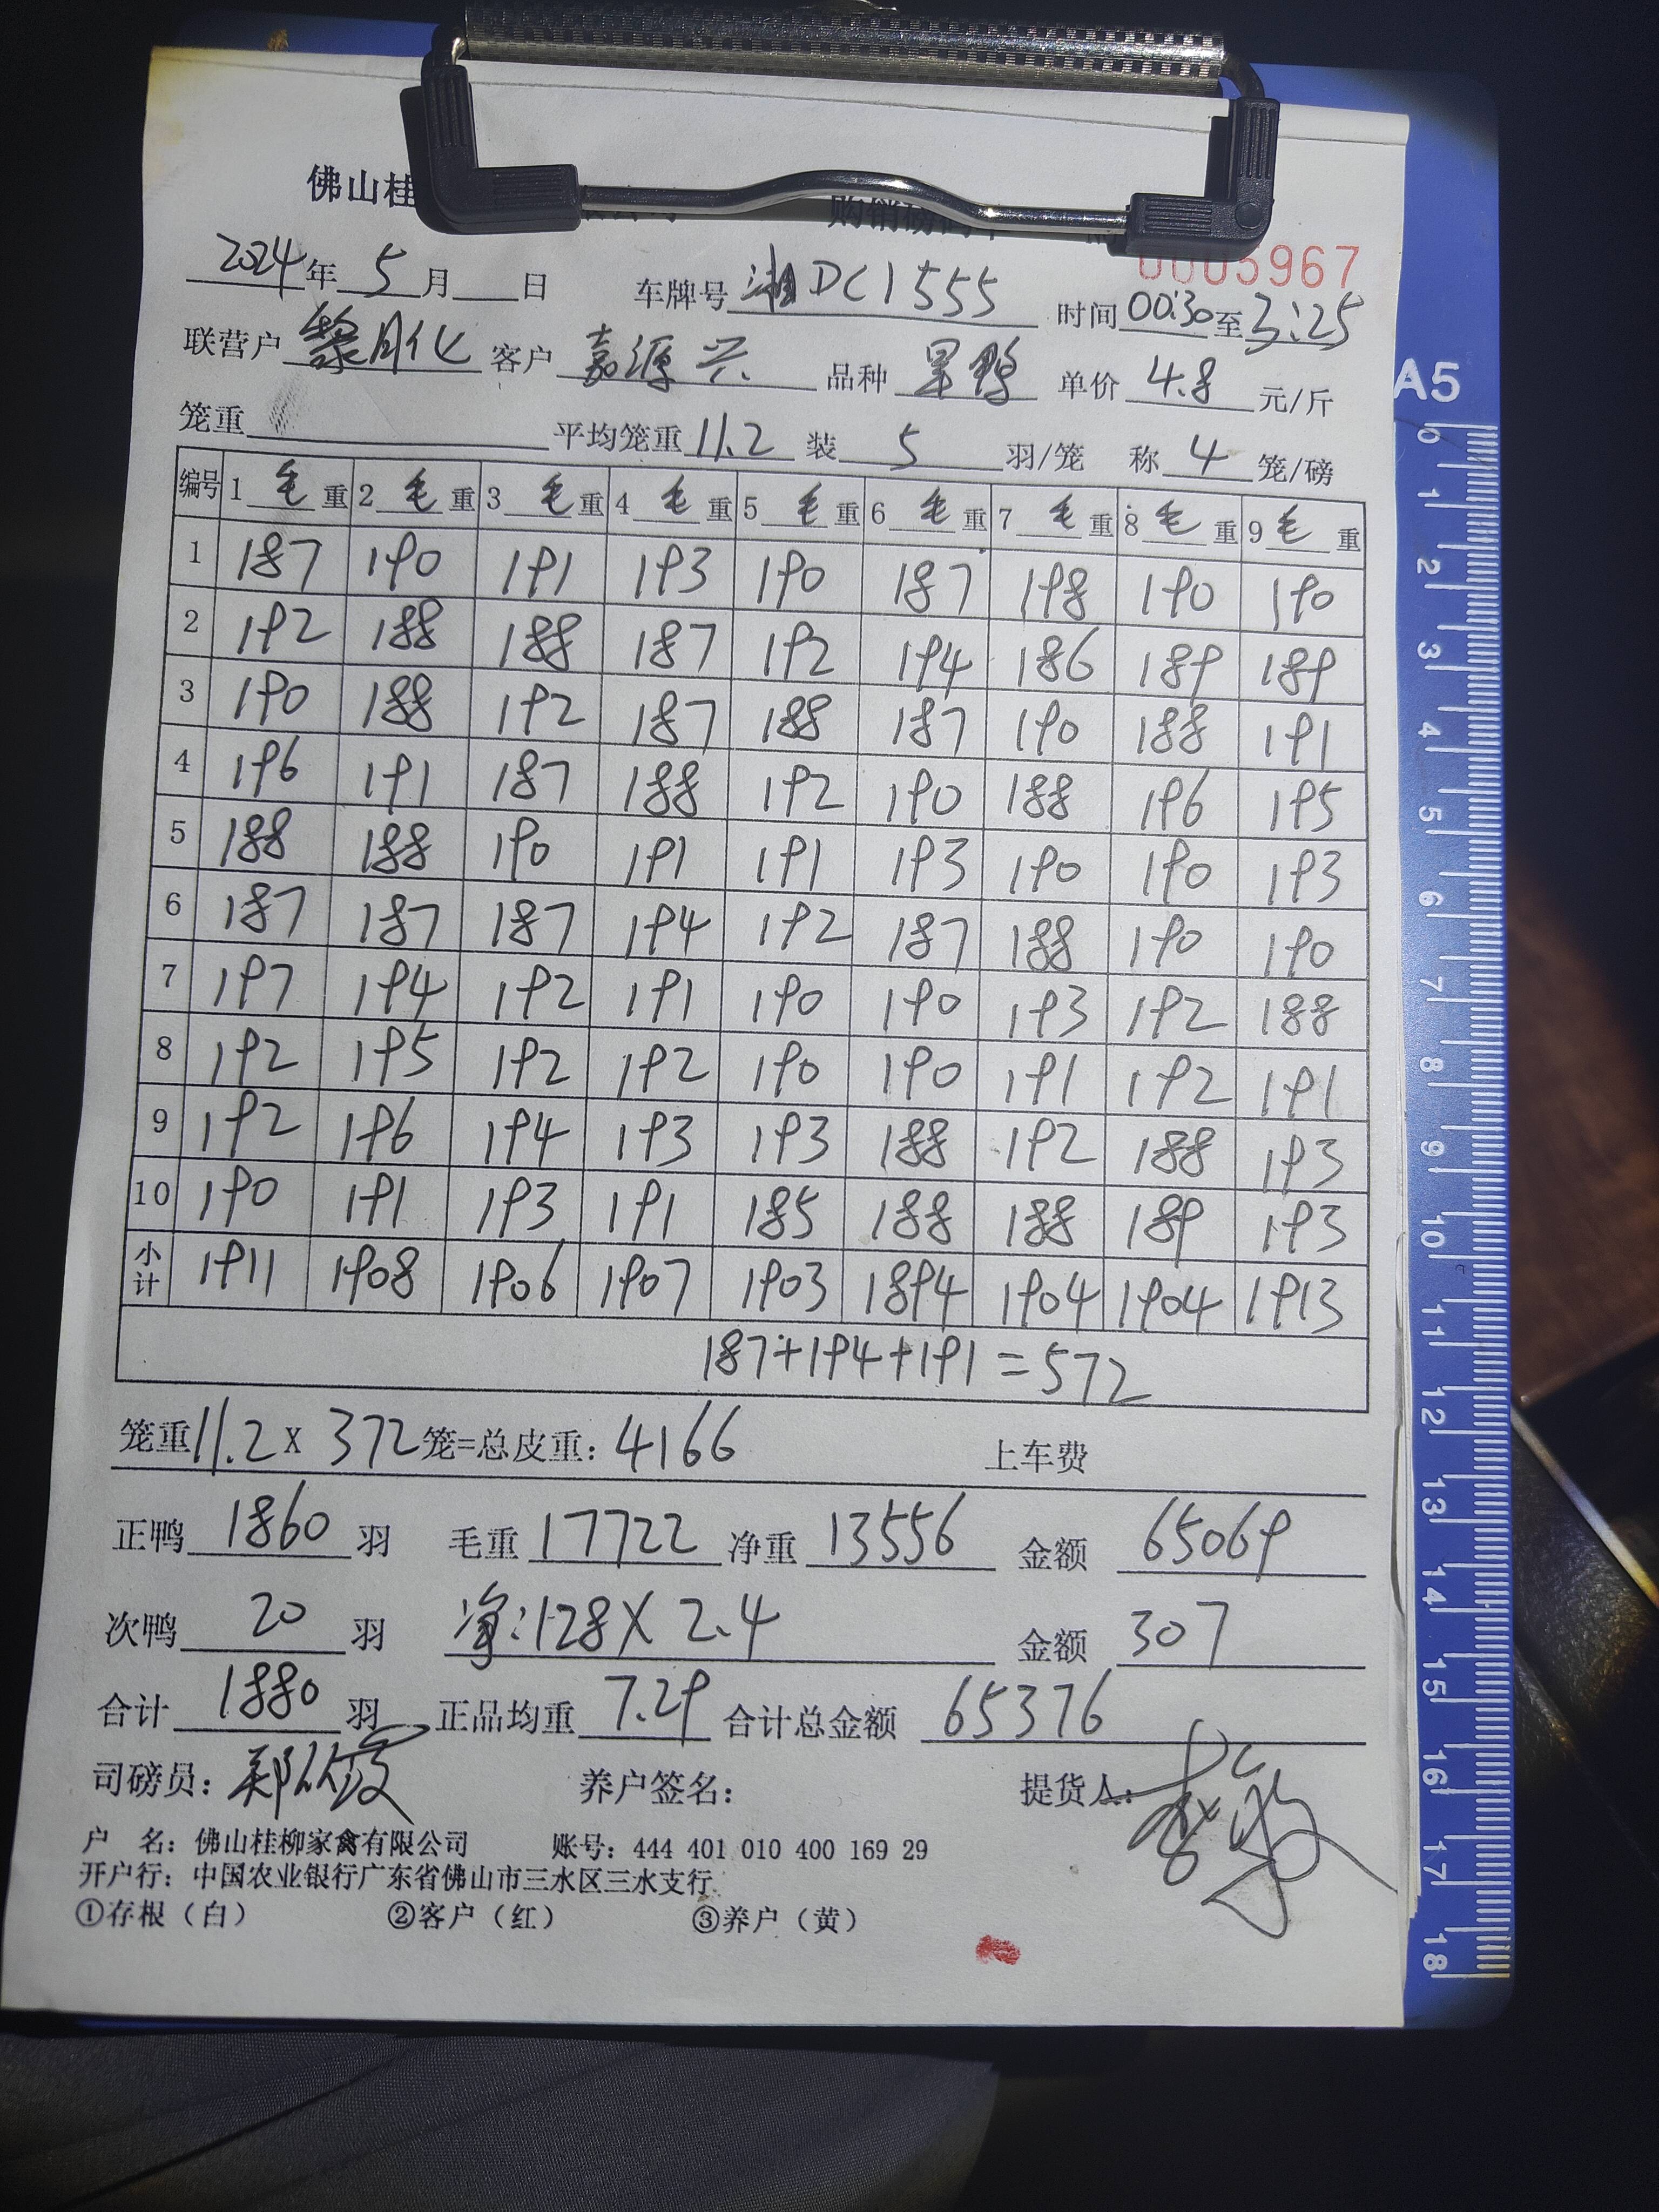 佛山桂
购销磅
0005967
2024年5月 日 车牌号 湘DC1555 时间00:30至3:25
联营户 黎月化 客户 嘉源兴 品种 旱鸭 单价 4.8 元/斤
笼重 平均笼重 11.2 装 5 羽/笼 称 4 笼/磅
编号 1 毛 重 2 毛 重 3 毛 重 4 毛 重 5 毛 重 6 毛 重 7 毛 重 8 毛 重 9 毛 重
1 187 190 191 193 190 187 198 190 190
2 192 188 188 187 192 194 186 189 189
3 190 188 192 187 188 187 190 188 191
4 196 191 187 188 192 190 188 196 195
5 188 188 190 191 191 193 190 190 193
6 187 187 187 194 192 187 188 190 190
7 197 194 192 191 190 190 193 192 188
8 192 195 192 192 190 190 191 192 191
9 192 196 194 193 193 188 192 188 193
10 190 191 193 191 185 188 188 189 193
小计 1911 1908 1906 1907 1903 1894 1904 1904 1913
187+194+191=572
笼重11.2×372笼=总皮重：4166 上车费
正鸭 1860 羽 毛重 17722 净重 13556 金额 65069
次鸭 20 羽 净:128×2.4 金额 307
合计 1880 羽 正品均重 7.29 合计总金额 65376
司磅员： 养户签名： 提货人：
户 名：佛山桂柳家禽有限公司 账号：444 401 010 400 169 29
开户行：中国农业银行广东省佛山市三水区三水支行
①存根（白） ②客户（红） ③养户（黄）
A5
0 1 2 3 4 5 6 7 8 9 10 11 12 13 14 15 16 17 18